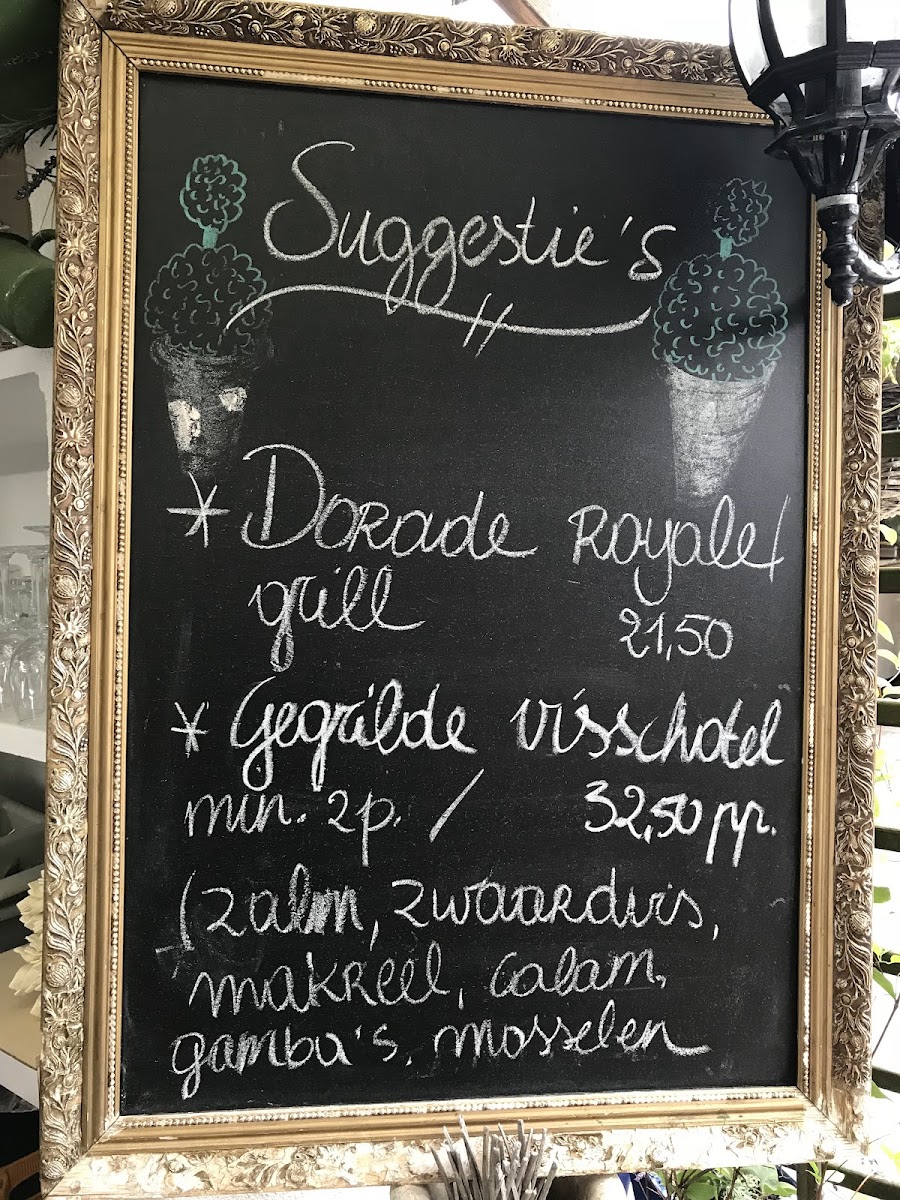 Suggestie's
* Dorade Royale/
grill 21,50
* Gegrilde visschotel
min. 2p. / 32,50 pp.
(zalm, zwaardvis,
makreel, calam,
gamba's, mosselen